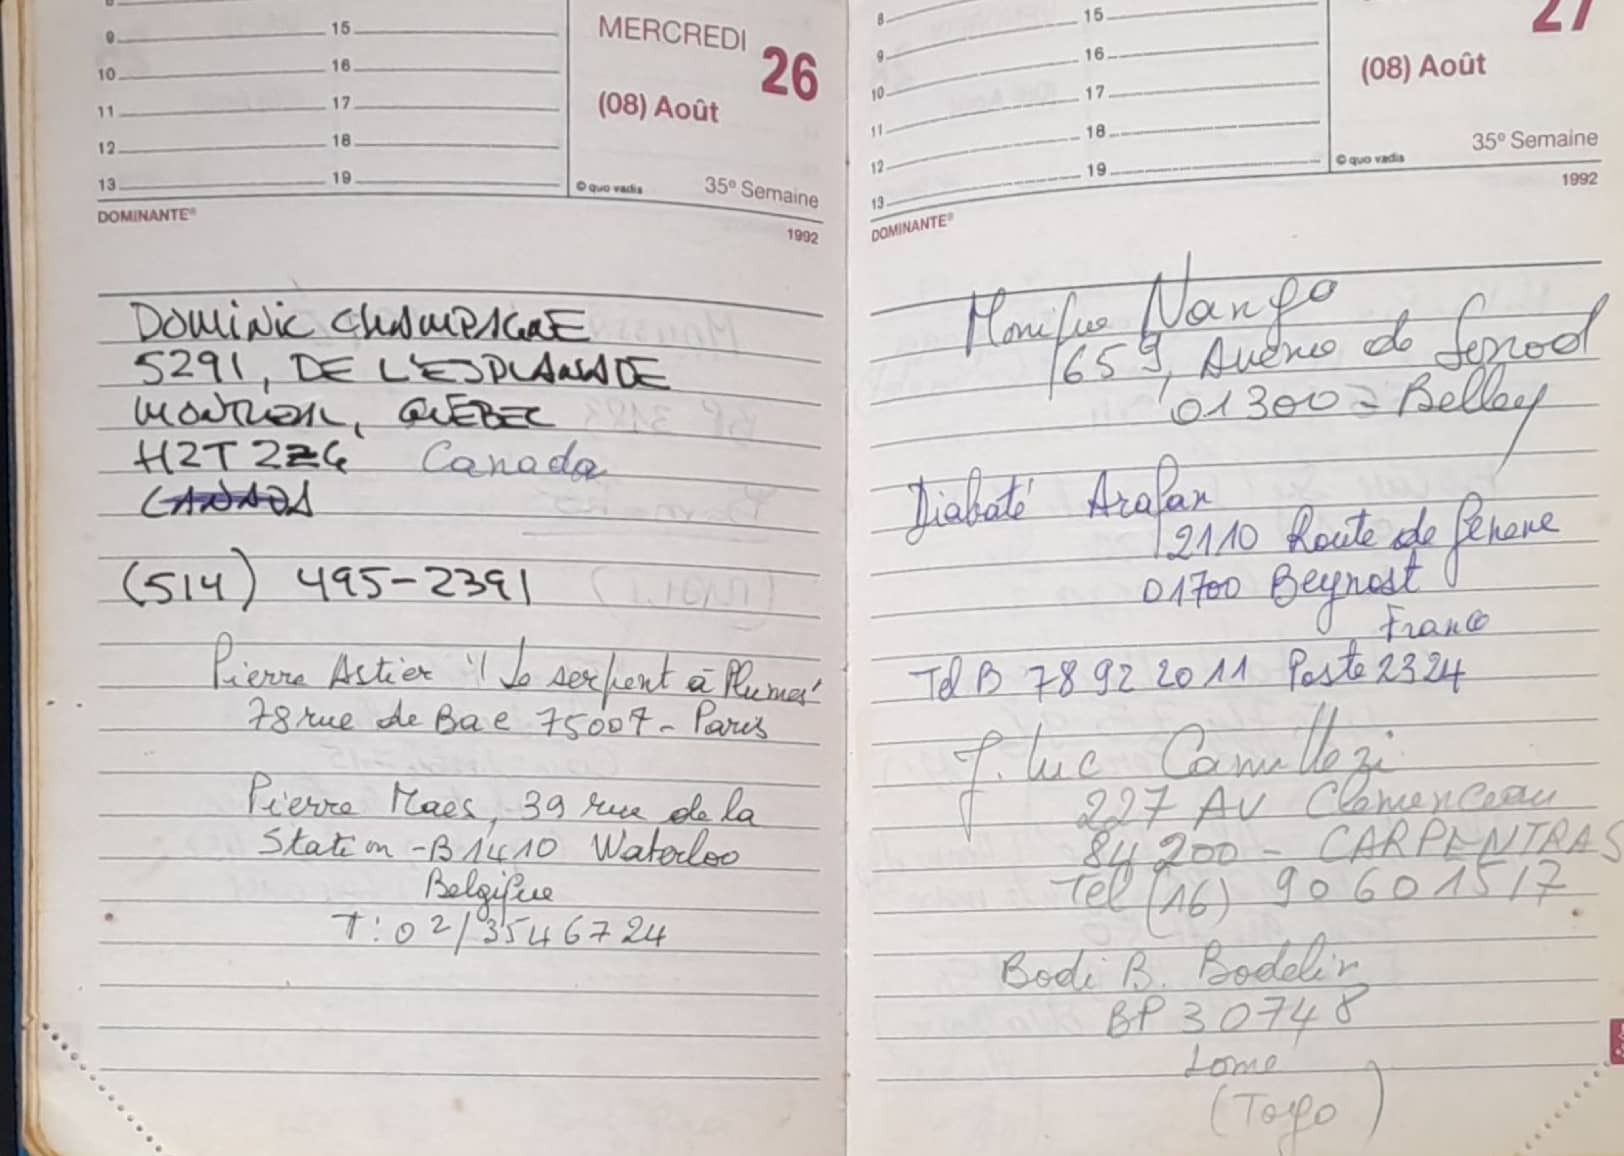 8
9 15
10 16
11 17
12 18
13 19
MERCREDI 26
(08) Août
© quo vadis 35e Semaine
DOMINANTE® 1992
DOMINIC CHAMPAGNE
5291, DE L'ESPLANADE
MONTRÉAL, QUÉBEC
H2T 2Z6 Canada
CANADA
(514) 495-2391
Pierre Astier "Le serpent à Plumes"
78 rue de Bac 75007 - Paris
Pierre Maes, 39 rue de la
Station - B1410 Waterloo
Belgique
T: 02/3546724
8 15
9 16
10 17
11 18
12 19
13
27
(08) Août
35e Semaine
© quo vadis
1992
DOMINANTE®
Monique Nango
659, Avenue de
01300 - Belley
Diabaté Arafan
2110 Route de Genève
01700 Beynost
France
Tel B 78 92 20 11 Poste 2324
J. Luc Camillezi
227 AV Clemenceau
84 200 - CARPENTRAS
Tel (16) 90 60 15 17
Bodi B. Bodelin
BP 30748
Lome
(Togo)